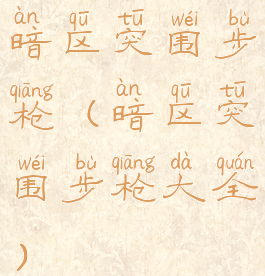 àn qū tū wéi bù
暗区突围步
qiāng àn qū tū
枪（暗区突
wéi bù qiāng dà quán
围步枪大全
）